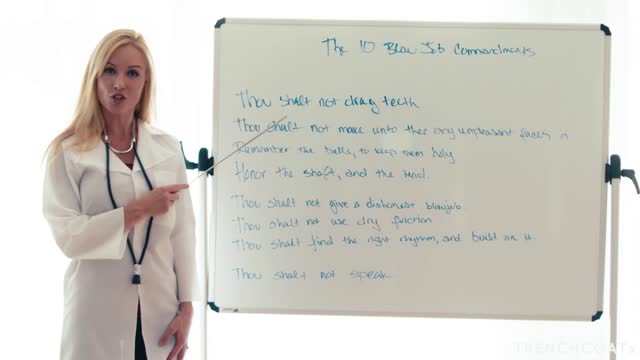 The 10 Blow Job Commandments
Thou shalt not drag teeth
Thou shalt not make unto thee any unpleasant faces
Remember the balls, to keep them holy
Honor the shaft, and the head.
Thou shall not give a dishonest blowjob.
Thou shalt not use dry friction
Thou shalt find the right rhythm, and build on it.
Thou shalt not speak
TRENCHCOATx